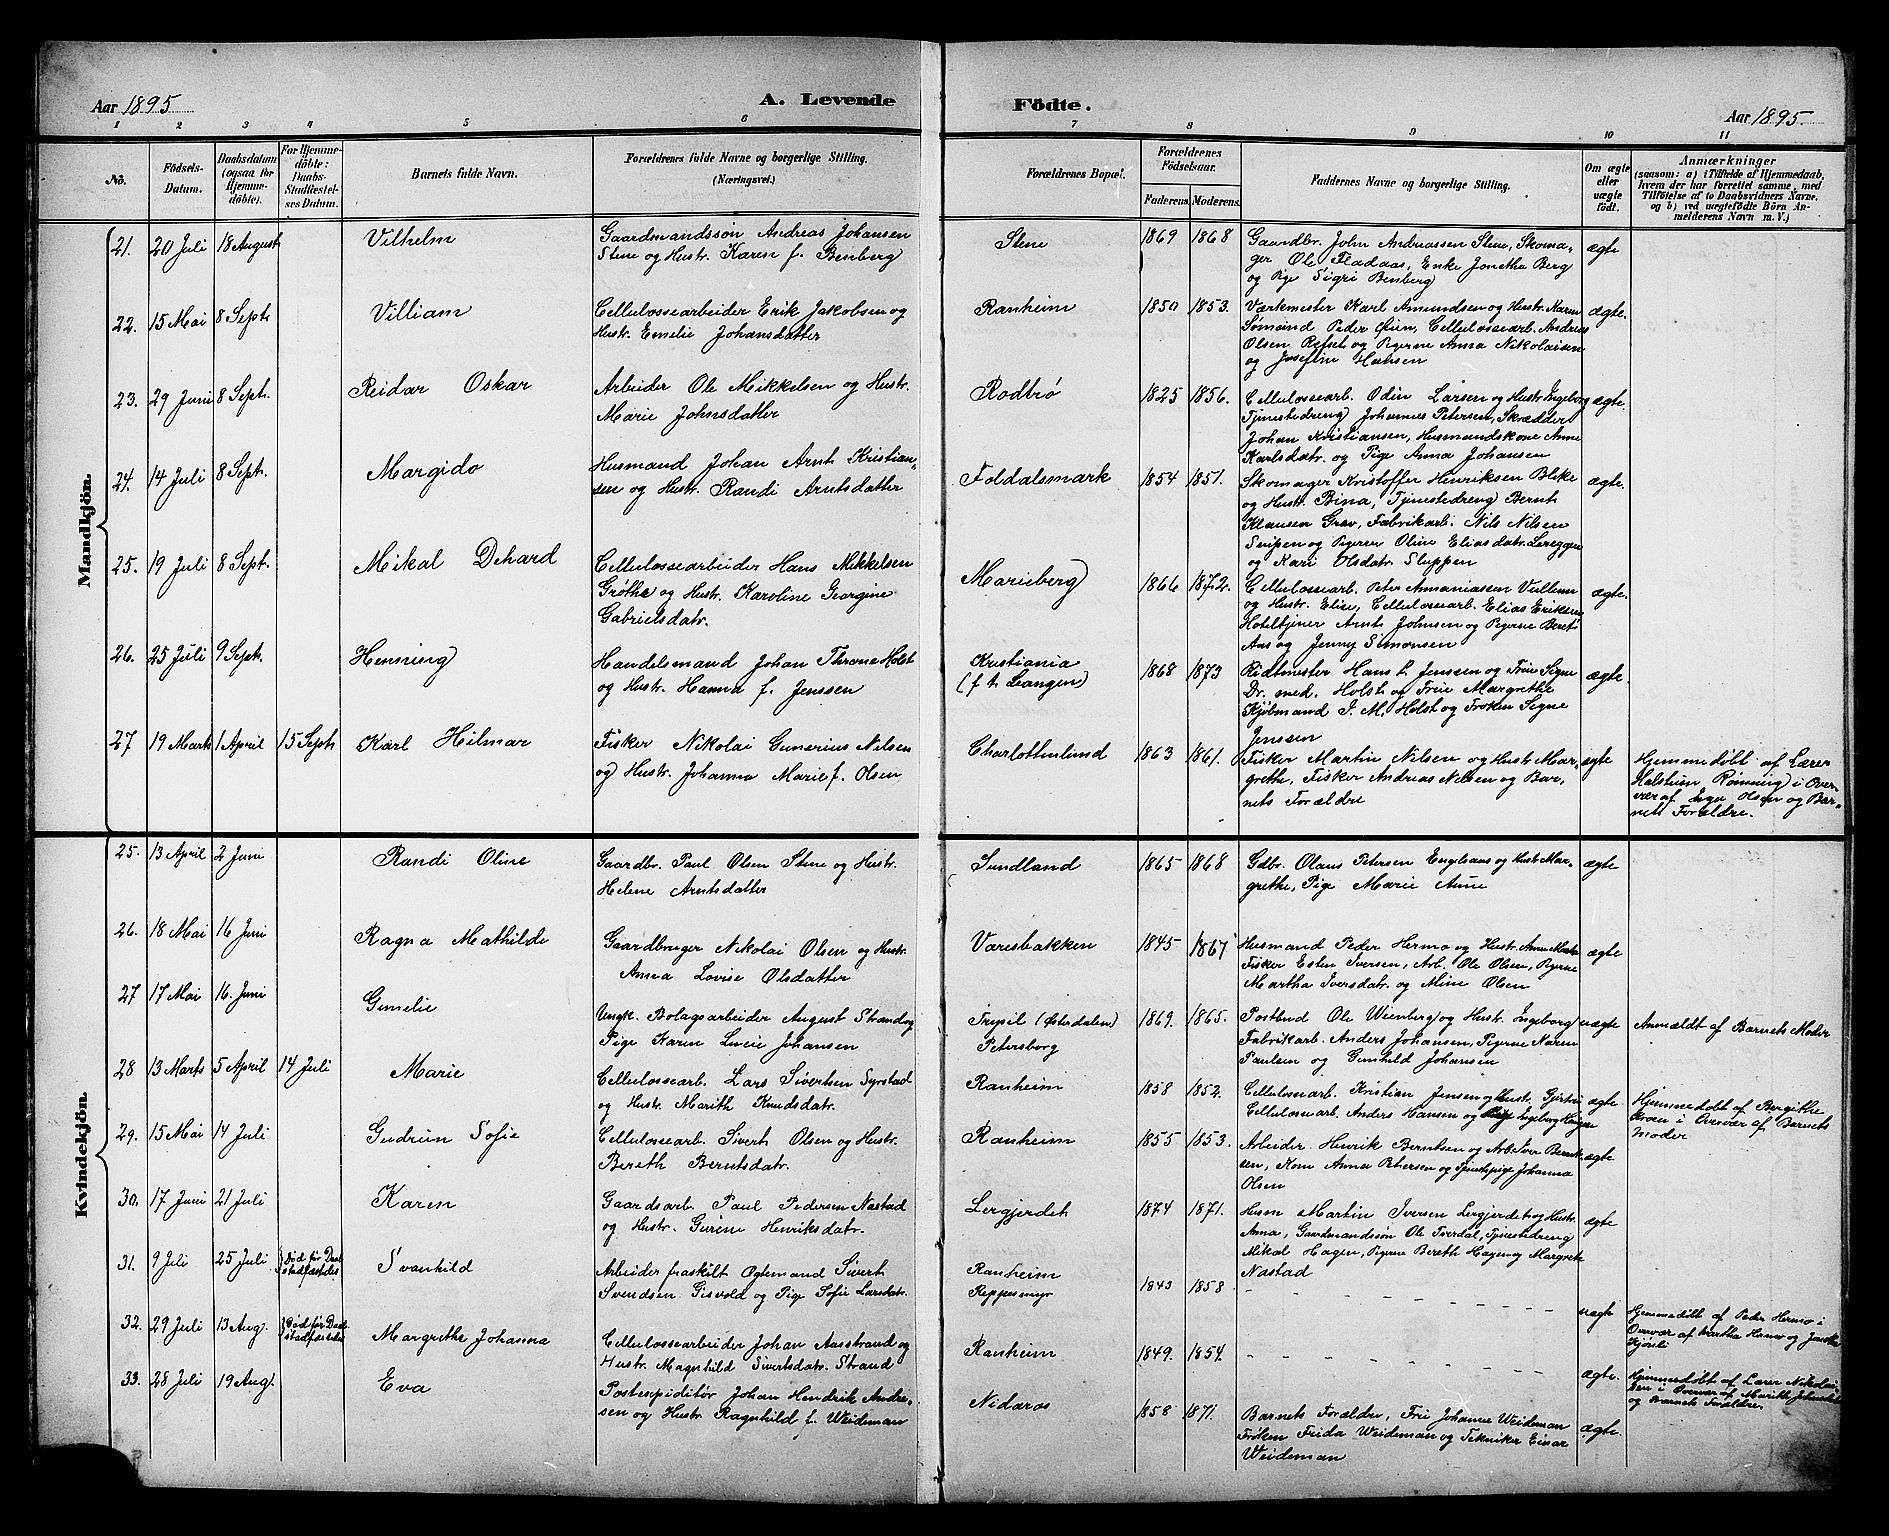 Aar 1895
A. Levende
Födte.
Aar 1895.
1 2 3 4 5 6 7 8 9 10 11
No.
Födsels-Datum.
Daabsdatum (ogsaa for Hjemme-döbte).
For Hjemme-döbte: Daabs-Stadfæstel-ses Datum.
Barnets fulde Navn.
Forældrenes fulde Navne og borgerlige Stilling.
(Næringsvei.)
Forældrenes Bopæl.
Forældrenes Födselsaar.
Faderens. Moderens.
Faddernes Navne og borgerlige Stilling.
Om ægte eller uægte födt.
Anmærkninger
(saasom: a) i Tilfælde af Hjemmedaab, hvem der har forrettet samme, med Tilföielse af to Daabsvidners Navne, og b) ved uægtefödte Börn An-melderens Navn m. V.)
Mandkjön.
21. 20 Juli 18 August Vilhelm
Gaardmandssøn Andreas Johansen
Stene og Hustr. Karen f. Benberg
Stene 1869 1868
Gaardbr. John Andreassen Stene, Skoma-
ger Ole Fladaas, Enke Jonetha Berg
og Pige Sigri Benberg
ægte
22. 15 Mai 8 Septr. Villiam
Cellulosearbeider Erik Jakobsen og
Hustr. Emelie Johansdatter
Ranheim 1850 1853.
Værkmester Karl Amundsen og Hustr. Karen
Sømand Peder Øien, Cellulosearb. Andreas
Olsen Refset og Pigerne Anna Nikolaisen
og Josefine Hansen
ægte.
23. 29 Juni 8 Septr. Reidar Oskar
Arbeider Ole Mikkelsen og Hustr.
Marie Johnsdatter
Rodbrø 1825 1856.
Cellulosearb. Odin Larsen og Hustr. Ingeborg
Tjenestedreng Johannes Petersen, Skrædder
Johan Kristiansen, Husmandskone Anne
Karlsdatr. og Pige Anna Johansen
ægte.
24. 14 Juli 8 Septr. Margido
Husmand Johan Arnt Kristian-
sen og Hustr. Randi Arntsdatter
Foldalsmark 1854 1851.
Skomager Kristoffer Henriksen Bleke
og Hustr. Bina, Tjenestedreng Bernt
Klausen Grav, Fabrikarb. Nils Nilsen
Snipen og Pigerne Oline Eliasdatr. Lereggen
og Kari Olsdatr. Sluppen
ægte.
25. 19 Juli 8 Septr. Mikal Dehard
Cellulosearbeider Hans Mikkelsen
Grøthe og Hustr. Karoline Georgine
Gabrielsdatr.
Marieberg 1866 1872.
Cellulosearb. Peter Annaniassen Vullum
og Hustr. Elise, Cellulosearb. Elias Eriksen,
Hoteltjener Arnt Johnsen og Pigerne Beret
Aas og Jenny Simonsen
ægte.
26. 25 Juli 9 Septr. Henning
Handelsmand Johan Throne Holst
og Hustr. Hanna f. Jenssen
Kristiania
(f. t. Leangen) 1868 1873
Ridtmester Hans L. Jenssen og Frue Signe
Dr. med. Holst og Frue Margrethe
Kjøbmand J. M. Holst og Frøken Signe
Jenssen
ægte.
27 19 Marts 1 April 15 Septr. Karl Hilmar
Fisker Nikolai Gunerius Nilsen
og Hustr. Johanna Marie f. Olsen
Charlottenlund 1863 1861.
Fisker Martin Nilsen og Hustr. Mar-
grethe, Fisker Andreas Nilsen og Bar-
nets Forældre
ægte
Hjemmedøbt af Lærer
Halstein Rønning i Over-
vær af Inga Olsen og Bar-
nets Forældre.
Kvindekjön.
25. 13 April 2 Juni Randi Oline
Gaardbr. Paul Olsen Stene og Hustr.
Helene Arntsdatter
Sundland 1865 1868
Gdbr. Olaus Petersen Engelsaas og Hustr. Mar-
grethe, Pige Marie Aune
ægte
26. 18 Mai 16 Juni Ragna Mathilde
Gaardbruger Nikolai Olsen og Hustr.
Anna Lovise Olsdatter
Væresbakken 1845 1867
Husmand Peder Hermo og Hustr. Anne Marta
Fisker Esten Iversen, Arb. Ole Olsen, Pigerne
Martha Iversdatr. og Mine Olsen
ægte
27 17 Mai 16. Juni Gunelie
Ungk. Bolagsarbeider August Strand og
Pige Karen Lucie Johansen
Trysil (Østerdalen)
Petersborg 1869. 1865.
Postbud Ole Weenberg og Hustr. Ingeborg
Fabrikarb. Anders Johansen, Pigerne Karen
Paulsen og Gunhild Johansen
uægte
Anmeldt af Barnets Moder
28 13 Marts 5 April 14 Juli Marie
Cellulosearb. Lars Sivertsen Syrstad
og Hustr. Marith Knudsdatr.
Ranheim 1858 1852.
Cellulosearb. Kristian Jensen og Hustr. Gjertru
Cellulosearb. Anders Hansen og Pige Ingeborg Haugen
ægte
Hjemmedøbt af Bergithe
Kroen i Overvær af Barnets
Moder
29. 15 Mai 14 Juli Gudrun Sofie
Cellulosearb. Sivert Olsen og Hustr.
Bereth Berntsdatr.
Ranheim 1855 1853.
Arbeider Henrik Berntsen og Arb. Iver Bernt-
sen, Kone Anna Petersen og Tjenestepige Johanna
Olsen
ægte
30. 17 Juni 21 Juli Karen
Gaardsarb. Paul Pedersen Nastad
og Hustr. Gurine Henriksdatr.
Lergjerdet 1874 1871.
Husm Martin Iversen Lergjerdet og Hustr.
Anna, Gaardmandssøn Ole Tverdal, Tjenestedreng
Mikal Hagen, Pigerne Bereth Hagen og Margreth
Nastad
ægte
31. 9 Juli 25 Juli Død før Daab
stadfæstedes Svanhild
Arbeider fraskilt Ægtemand Sivert
Svendsen Gisvold og Pige Sofie Larsdatr.
Ranheim
Reppesmyr 1843 1858
uægte
Hjemmedøbt af Peder Hermo i
Overvær af Martha Hermo og
32. 29 Juli 13 Aug. Død før Daab
stadfæstedes Margrethe Johanna
Cellulosearbeider Johan Aasstrand og
Hustr. Magnhild Sivertsdatr. Strand
Ranheim 1849. 1854.
ægte.
Hjemmedøbt af Lærer Nikolai
i Overvær af Marith
og Barnets Forældre.
33. 28 Juli 19 Aug. Eva
Postexpeditør Johan Hendrik Andre-
sen og Hustr. Ragnhild f. Weideman
Nidarøs 1858 1871.
Barnets Forældre, Frue Johanne Weideman
Frøken Frida Weideman og Tekniker Einar
Weideman
ægte.